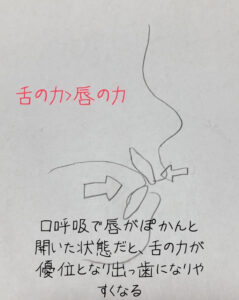 舌の力>唇の力
口呼吸で唇がぽかんと
開いた状態だと、舌の力が
優位となり出っ歯になりや
すくなる